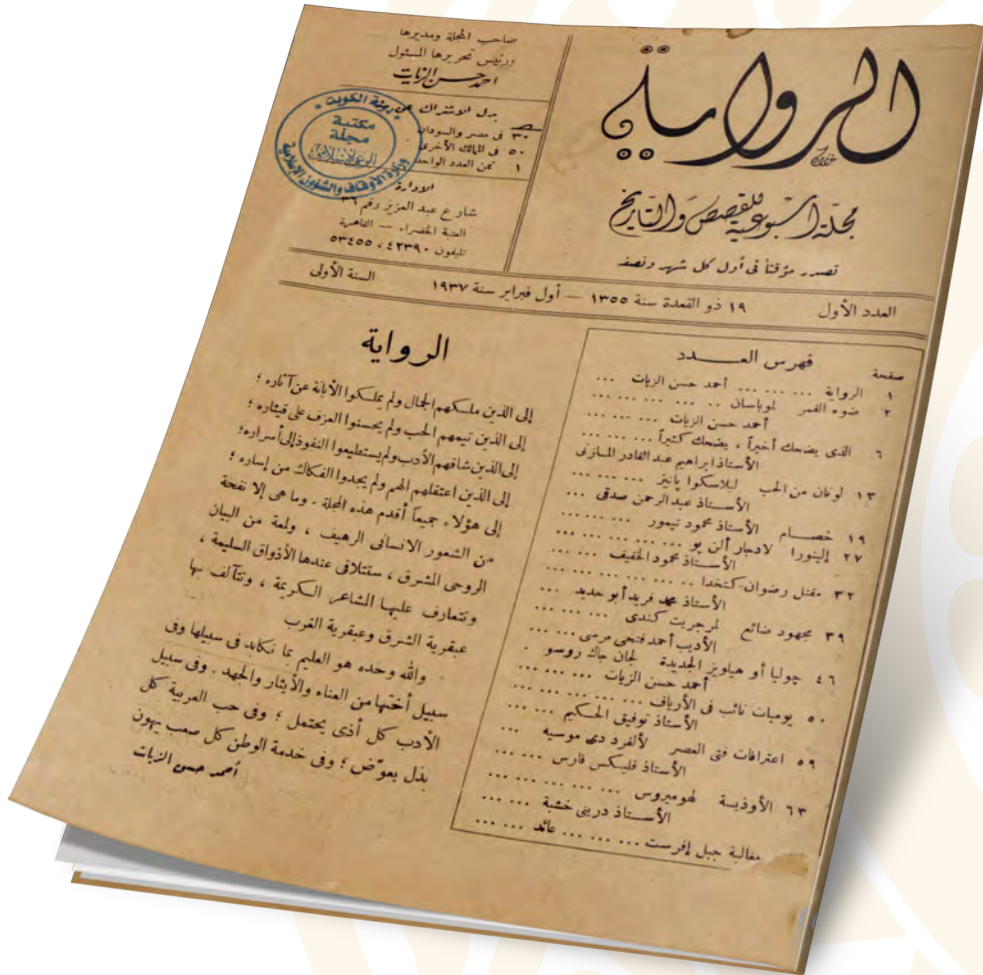 الرواية
مجلة أسبوعية للقصص والتاريخ
تصدر مؤقتاً فى أول كل شهر ونصفه
صاحب المجلة ومديرها
ورئيس تحريرها المسئول
احمد حسن الزيات
بدل الاشتراك عن سنة
٣٠ فى مصر والسودان
٥٠ فى الممالك الأخرى
١ ثمن العدد الواحد
الادارة
شارع عبد العزيز رقم ٣٦
العتبة الخضراء — القاهرة
تليفون ٤٢٣٩٠ ، ٥٣٤٥٥
دولة الكويت
مكتبة
مجلة
الوعي الإسلامي
وزارة الأوقاف والشؤون الإسلامية
العدد الأول ١٩ ذو القعدة سنة ١٣٥٥ — أول فبراير سنة ١٩٣٧ السنة الأولى
فهرس العـــدد
صفحة
١ الرواية ... ... ... أحمد حسن الزيات ...
٢ ضوء القمر لموباسان ... ... ... ...
أحمد حسن الزيات ... ... ...
٦ الذى يضحك أخيراً ، يضحك كثيراً ... ... ...
الأستاذ ابراهيم عبد القادر المازنى
١٣ لونان من الحب لبلاسكوا يانيز ... ... ...
الأســتاذ عبد الرحمن صدقى ...
١٩ خصــام الأستاذ محمود تيمور ... ... ...
٢٧ إلينورا لادجار ألن بو ... ... ... ... ...
الأســتاذ محمود الخفيف ... ...
٣٢ مقتل رضوان كتخدا ... ... ... ... ...
الأستاذ محمد فريد أبو حديد ...
٣٩ مجهود ضائع لمرجريت كندى ... ... ...
الأديب أحمد فتحى مرسى ... ...
٤٦ جوليا أو هيلويز الجديدة لجان جاك روسو .
أحمد حسن الزيات ... ... ...
٥٠ يوميات نائب فى الأرياف ... ... ... ...
الأستاذ توفيق الحكيم ... ...
٥٩ اعترافات فتى العصر لألفرد دى موسيه ...
الأستاذ فليكس فارس ... ...
٦٣ الأوذيسة لهوميروس ... ... ... ...
الأســتاذ درينى خشبة ... ...
مغالبة جبل إفرست ... ... ... عائد ... ...
الرواية
إلى الذين ملـكهم الجمال ولم يملـكوا الأبانة عن آثاره ؛
إلى الذين تيمهم الحب ولم يحسنوا العزف على قيثاره ؛
إلى الذين شاقهم الأدب ولم يستطيعوا النفوذ إلى أسراره؛
إلى الذين اعتقلهم الهم ولم يجدوا الفكاك من إساره ؛
إلى هؤلاء جميعاً أقدم هذه المجلة . وما هى إلا نفحة
من الشعور الانسانى الرهيف ، ولمعة من البيان
الروحى المشرق ، ستتلاقى عندها الأذواق السليمة ،
وتتعارف عليها المشاعر الـكريمة ، وتتآلف بها
عبقرية الشرق وعبقرية الغرب
والله وحده هو العليم بما نـكابد فى سبيلها وفى
سبيل أختها من العناء والأيثار والجهد . وفى سبيل
الأدب كل أذى يحتمل ؛ وفى حب العربية كل
بذل يعوّض ؛ وفى خدمة الوطن كل صعب يهون
أحمد حسن الزيات